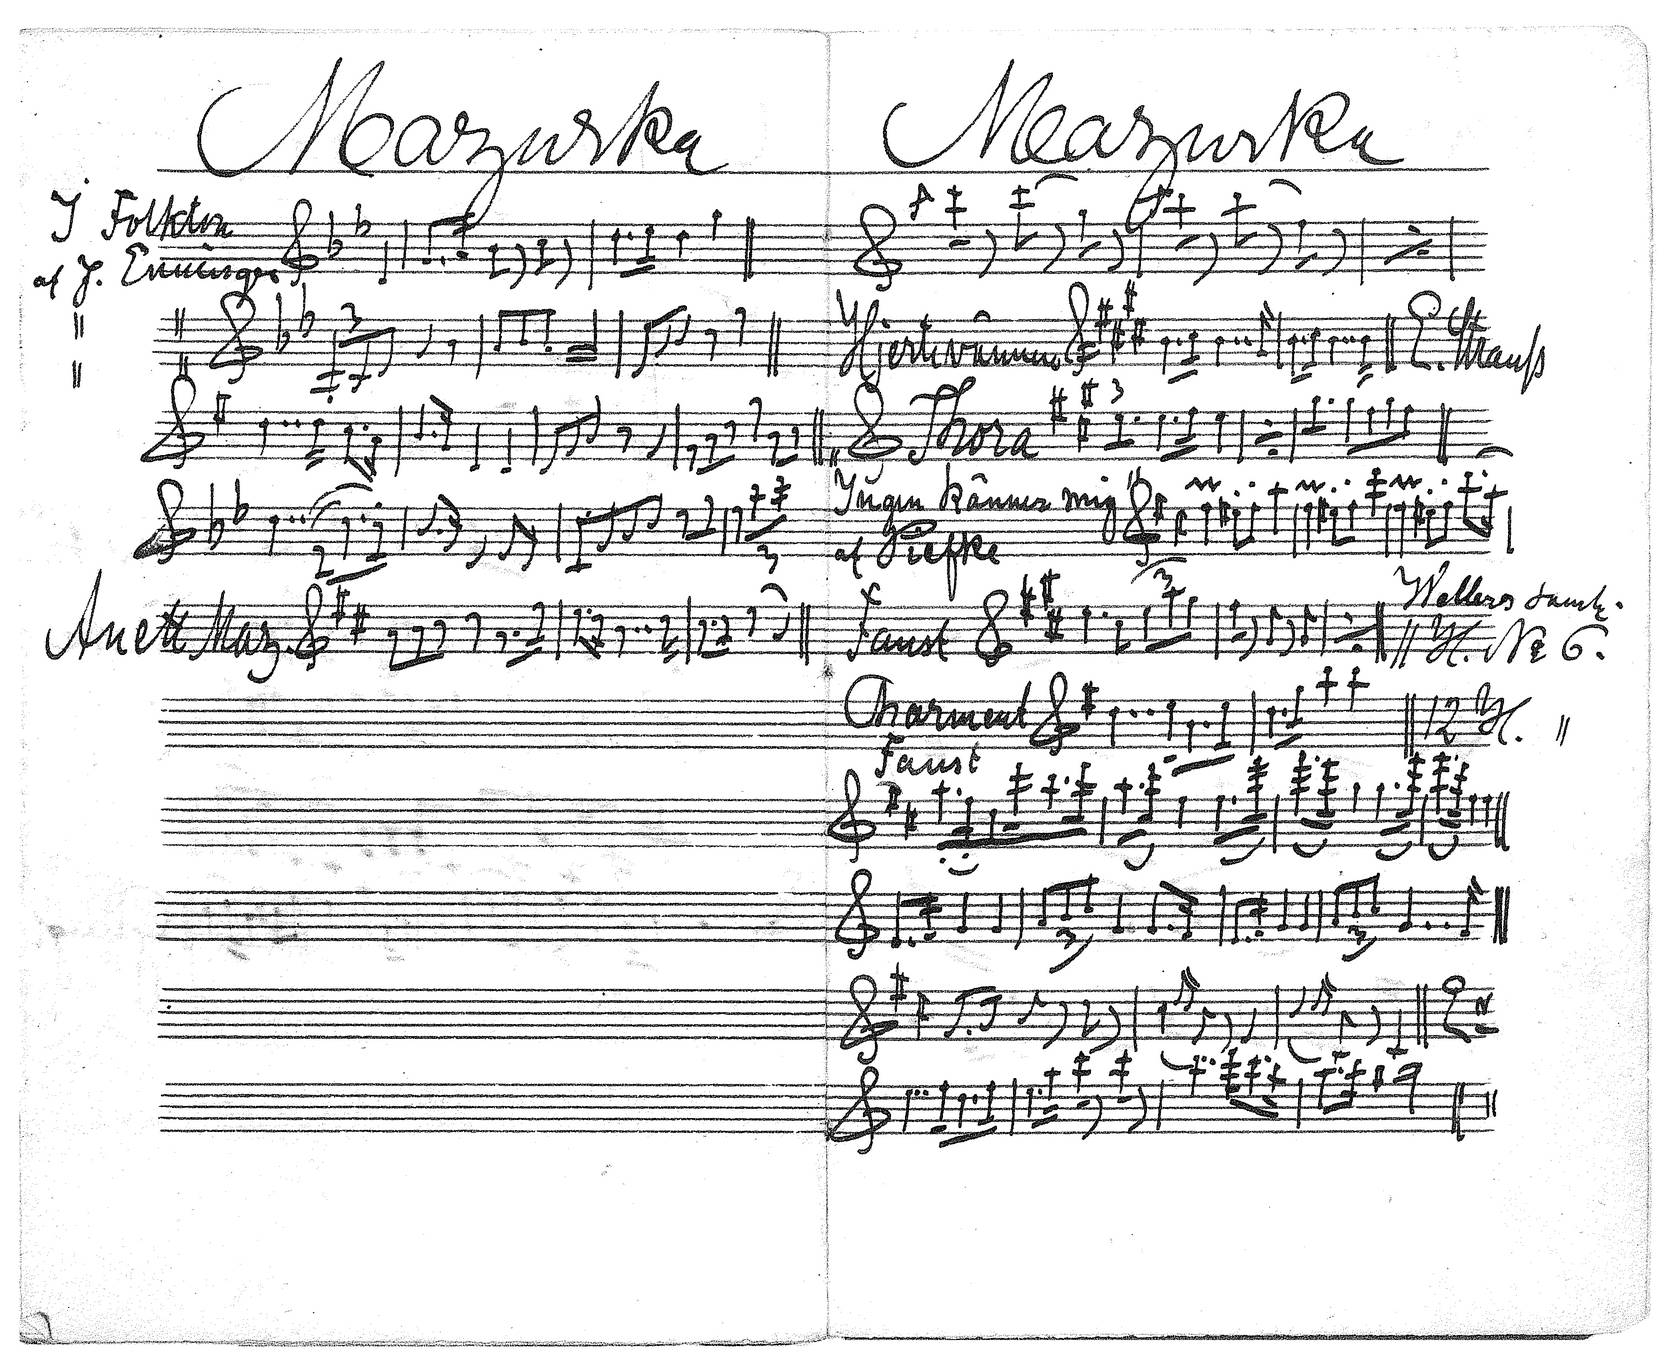 Mazurka
I Folkton
af J. Enninger
" "
"
Anett Maz.
Mazurka
Hjertevännen E. Strauss
Thora
"Ingen känner mig"
af Piefke
Faust Wellers saml.
H. No 6.
Charment 12 H. "
Faust